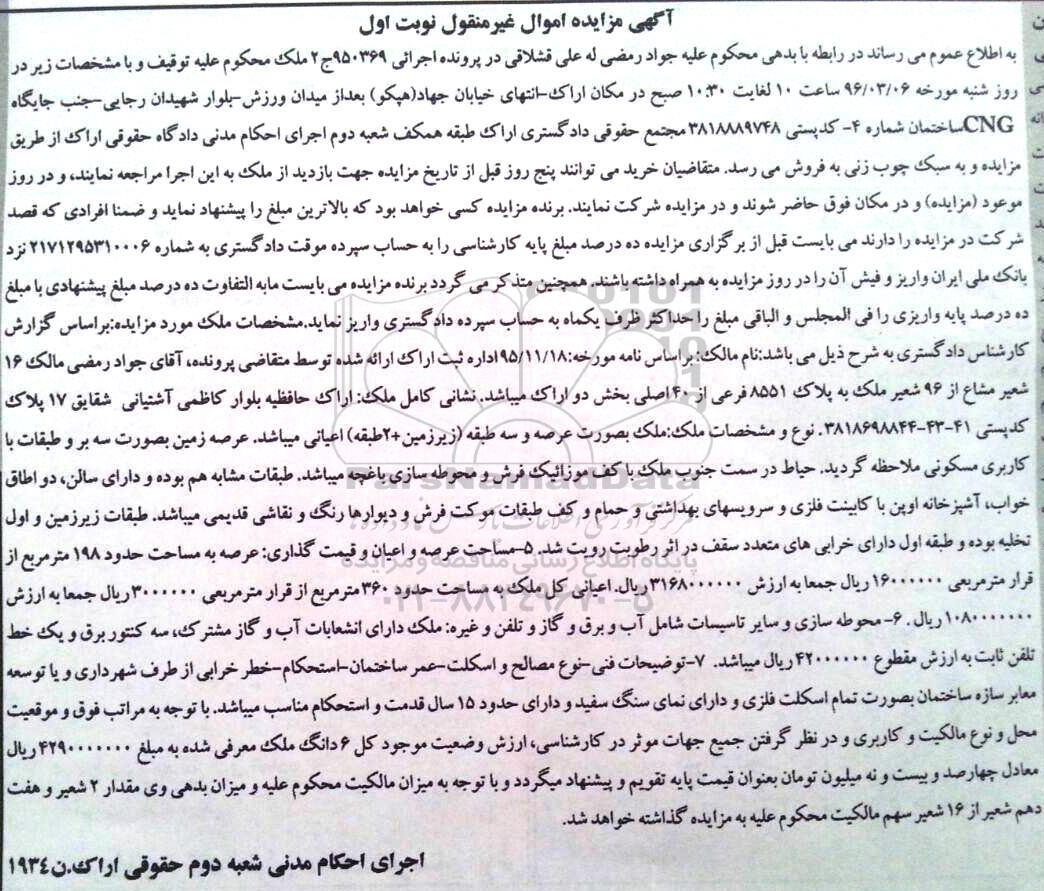 آگهی مزایده اموال غیرمنقول نوبت اول
به اطلاع عموم می رساند در رابطه با بدهی محکوم علیه جواد رمضی له علی قشلاقی در پرونده اجرائی ۹۵۰۳۶۹ج۲ ملک محکوم علیه توقیف و با مشخصات زیر در
روز شنبه مورخه ۹۶/۰۳/۰۶ ساعت ۱۰ لغایت ۱۰:۳۰ صبح در مکان اراک-انتهای خیابان جهاد(هپکو) بعداز میدان ورزش-بلوار شهیدان رجایی-جنب جایگاه
CNGساختمان شماره ۴- کدپستی ۳۸۱۸۸۸۹۷۴۸ مجتمع حقوقی دادگستری اراک طبقه همکف شعبه دوم اجرای احکام مدنی دادگاه حقوقی اراک از طریق
مزایده و به سبک چوب زنی به فروش می رسد. متقاضیان خرید می توانند پنج روز قبل از تاریخ مزایده جهت بازدید از ملک به این اجرا مراجعه نمایند، و در روز
موعود (مزایده) و در مکان فوق حاضر شوند و در مزایده شرکت نمایند. برنده مزایده کسی خواهد بود که بالاترین مبلغ را پیشنهاد نماید و ضمنا افرادی که قصد
شرکت در مزایده را دارند می بایست قبل از برگزاری مزایده ده درصد مبلغ پایه کارشناسی را به حساب سپرده موقت دادگستری به شماره ۲۱۷۱۲۹۵۳۱۰۰۰۶ نزد
بانک ملی ایران واریز و فیش آن را در روز مزایده به همراه داشته باشند. همچنین متذکر می گردد برنده مزایده می بایست مابه التفاوت ده درصد مبلغ پیشنهادی با مبلغ
ده درصد پایه واریزی را فی المجلس و الباقی مبلغ را حداکثر ظرف یکماه به حساب سپرده دادگستری واریز نماید.مشخصات ملک مورد مزایده:براساس گزارش
کارشناس دادگستری به شرح ذیل می باشد:نام مالک: براساس نامه مورخه:۹۵/۱۱/۱۸اداره ثبت اراک ارائه شده توسط متقاضی پرونده، آقای جواد رمضی مالک ۱۶
شعیر مشاع از ۹۶ شعیر ملک به پلاک ۸۵۵۱ فرعی از ۴۰ اصلی بخش دو اراک میباشد. نشانی کامل ملک: اراک حافظیه بلوار کاظمی آشتیانی شقایق ۱۷ پلاک
کدپستی ۴۱-۴۳-۳۸۱۸۶۹۸۸۴۴. نوع و مشخصات ملک:ملک بصورت عرصه و سه طبقه (زیرزمین+۲طبقه) اعیانی میباشد. عرصه زمین بصورت سه بر و طبقات با
کاربری مسکونی ملاحظه گردید. حیاط در سمت جنوب ملک با کف موزائیک فرش و محوطه سازی باغچه میباشد. طبقات مشابه هم بوده و دارای سالن، دو اطاق
خواب، آشپزخانه اوپن با کابینت فلزی و سرویسهای بهداشتی و حمام و کف طبقات موکت فرش و دیوارها رنگ و نقاشی قدیمی میباشد. طبقات زیرزمین و اول
تخلیه بوده و طبقه اول دارای خرابی های متعدد سقف در اثر رطوبت رویت شد. ۵-مساحت عرصه و اعیان و قیمت گذاری: عرصه به مساحت حدود ۱۹۸ مترمربع از
قرار مترمربعی ۱۶۰۰۰۰۰۰ ریال جمعا به ارزش ۳۱۶۸۰۰۰۰۰۰ ریال. اعیانی کل ملک به مساحت حدود ۳۶۰ مترمربع از قرار مترمربعی ۳۰۰۰۰۰۰ ریال جمعا به ارزش
۱۰۸۰۰۰۰۰۰۰ ریال. ۶- محوطه سازی و سایر تاسیسات شامل آب و برق و گاز و تلفن و غیره: ملک دارای انشعابات آب و گاز مشترک، سه کنتور برق و یک خط
تلفن ثابت به ارزش مقطوع ۴۲۰۰۰۰۰۰ ریال میباشد. ۷-توضیحات فنی-نوع مصالح و اسکلت-عمر ساختمان-استحکام-خطر خرابی از طرف شهرداری و یا توسعه
معابر سازه ساختمان بصورت تمام اسکلت فلزی و دارای نمای سنگ سفید و دارای حدود ۱۵ سال قدمت و استحکام مناسب میباشد. با توجه به مراتب فوق و موقعیت
محل و نوع مالکیت و کاربری و در نظر گرفتن جمیع جهات موثر در کارشناسی، ارزش وضعیت موجود کل ۶ دانگ ملک معرفی شده به مبلغ ۴۲۹۰۰۰۰۰۰۰ ریال
معادل چهارصد و بیست و نه میلیون تومان بعنوان قیمت پایه تقویم و پیشنهاد میگردد و با توجه به میزان مالکیت محکوم علیه و میزان بدهی وی مقدار ۲ شعیر و هفت
دهم شعیر از ۱۶ شعیر سهم مالکیت محکوم علیه به مزایده گذاشته خواهد شد.
اجرای احکام مدنی شعبه دوم حقوقی اراک.ن۱۹۳۴
ParsNamadData
پایگاه اطلاع رسانی مناقصه و مزایده
۰۲۱-۸۸۳۴۹۶۷۰-۵